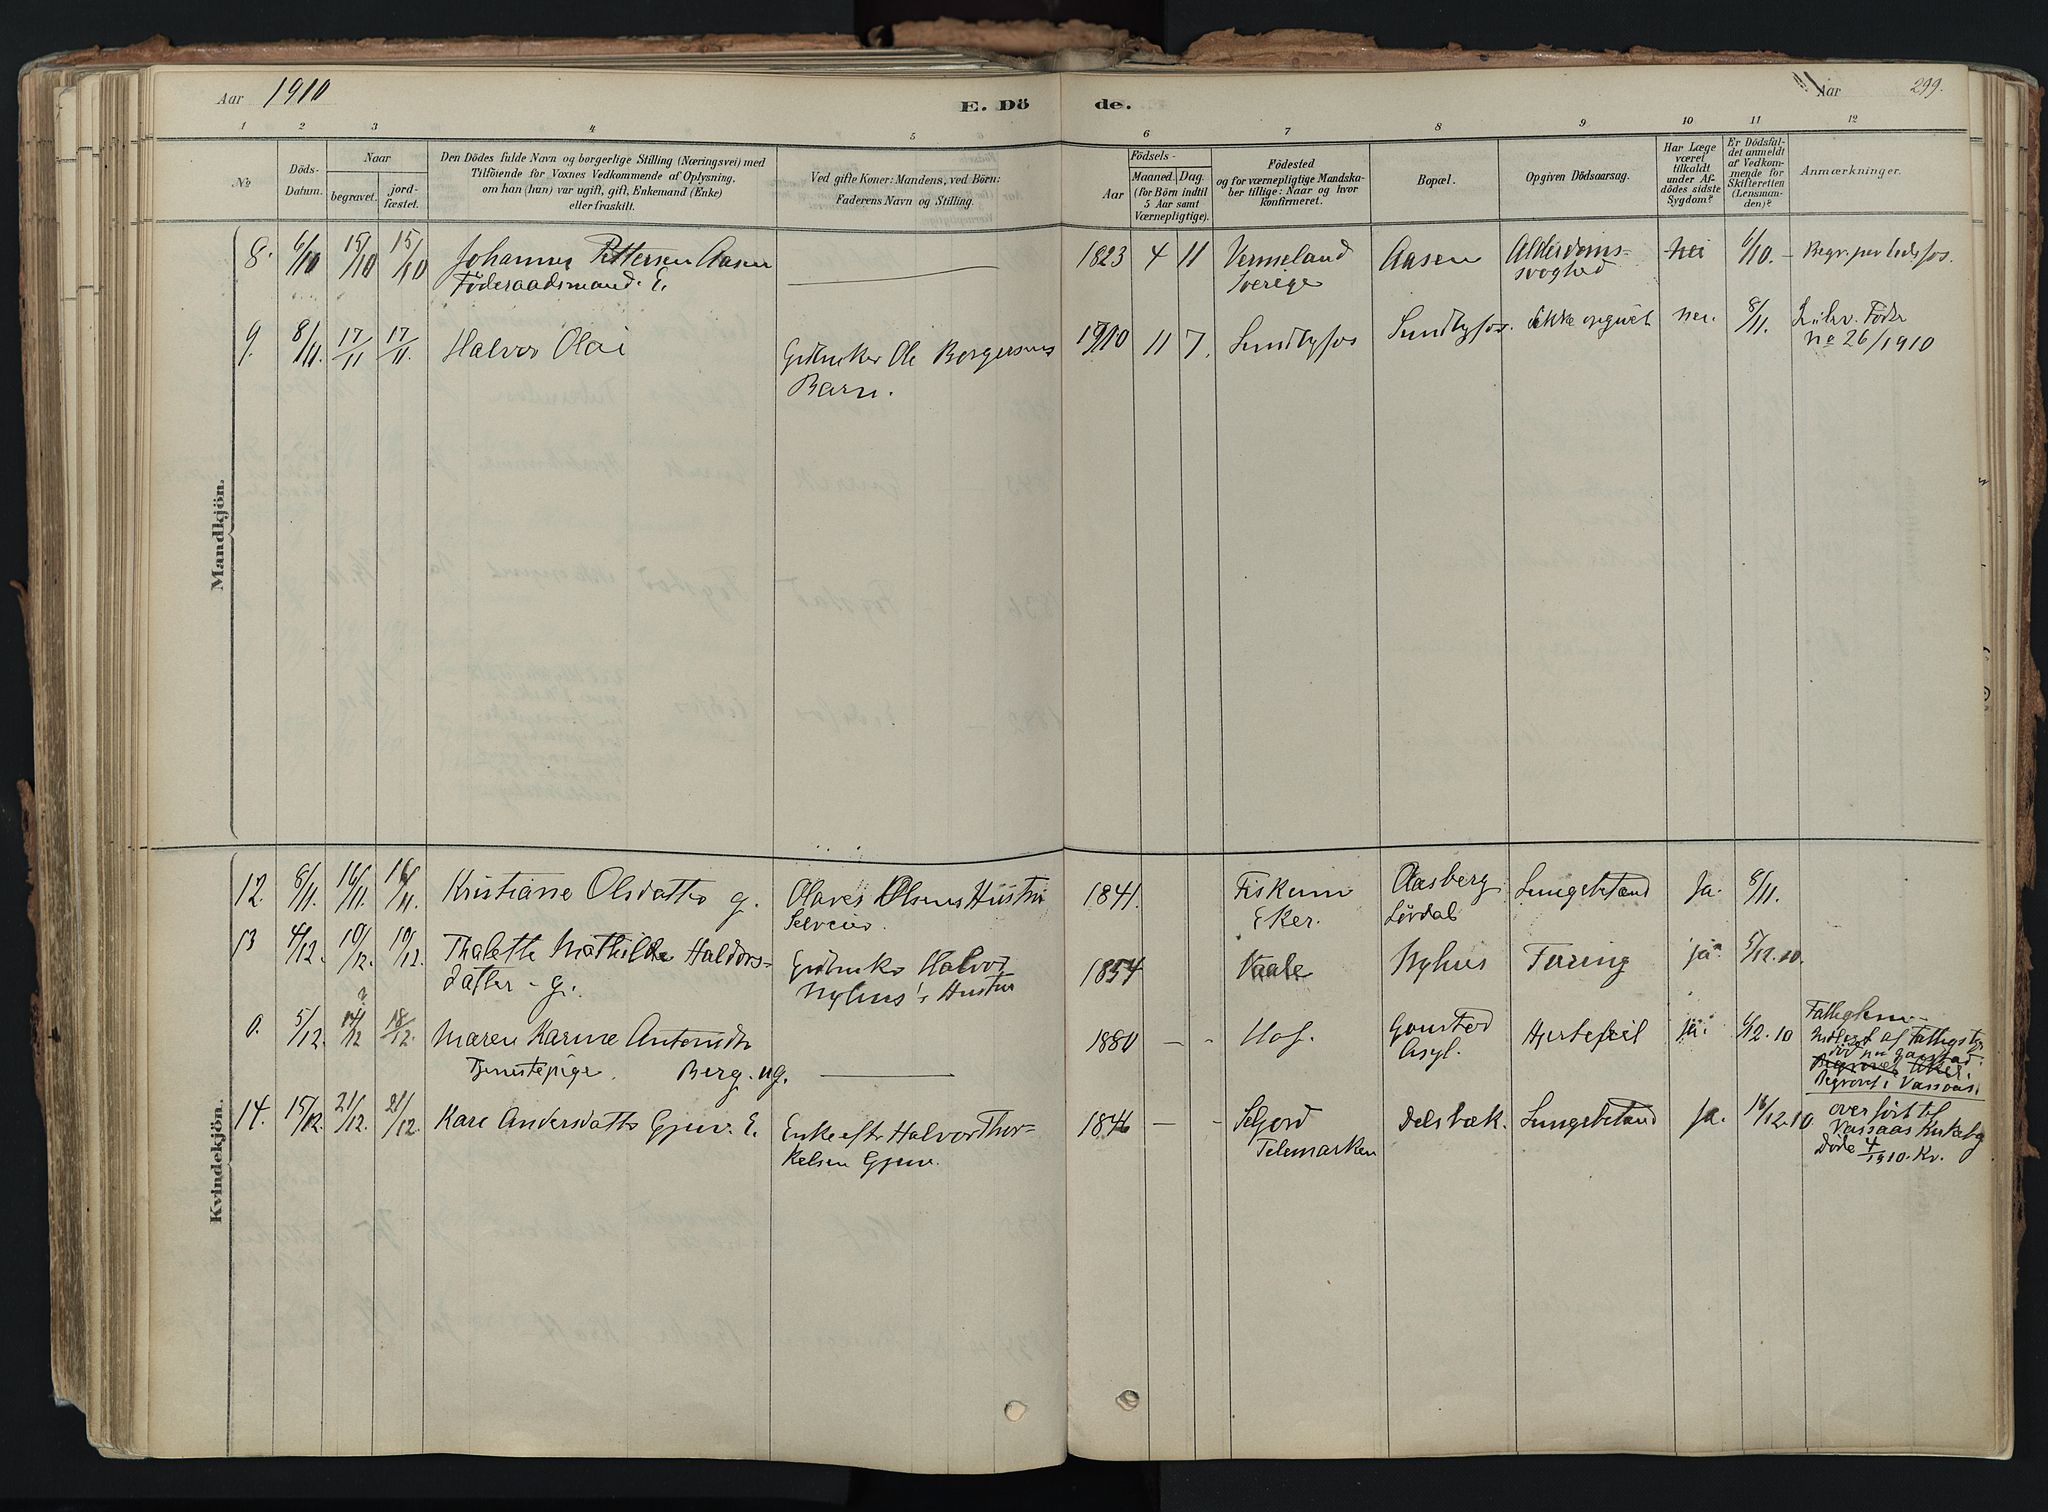 Aar 1910
E. Dö
de.
Aar
299.
1 2 3 4 5 6 7 8 9 10 11 12
No
Döds-
Datum.
Naar
begravet.
jord-
fæstet.
Den Dödes fulde Navn og borgerlige Stilling (Næringsvei) med
Tilföiende for Voxnes Vedkommende af Oplysning,
om han (hun) var ugift, gift, Enkemand (Enke)
eller fraskilt.
Ved gifte Koner: Mandens, ved Börn:
Faderens Navn og Stilling.
Födsels-
Aar
Maaned.
Dag.
(for Börn indtil
5 Aar samt
Værnepligtige).
Födested
og for værnepligtige Mandska-
ber tillige: Naar og hvor
konfirmeret.
Bopæl.
Opgiven Dödsaarsag.
Har Læge
været
tilkaldt
under Af-
dödes sidste
Sygdom?
Er Dödsfal-
det anmeldt
af Vedkom-
mende for
Skifteretten
(Lensman-
den)?
Anmærkninger.
Mandkjön.
8. 6/10 15/10 15/10 Johannes Pettersen Aasen
Föderaadsmand. E.
1823 4 11 Vermeland
Sverige
Aasen
Alderdoms-
svaghed
nei 6/10. -
9. 8/11 17/11 17/11. Halvor Olai
Grdbruker Ole Borgersens
Barn.
1910 11 7. Sundbyfos Sundbyfos. ikke opgivet nei. 8/11.
Föde
No 26/1910
Kvindekjön.
12. 8/11. 16/11. 16/11. Kristiane Olsdatter g.
Olaves Olsens Hustru
Selveier.
1841. Fiskum
Eker.
Aasberg
Lördal
Lungebetænd Ja. 8/11.
13 4/12. 10/12. 10/12. Thalette Mathilde Haldors-
datter - g.
Grdbruker Halvor
Nyhus's Hustru
1854 Vaale Nyhus Tæring ja 5/12.10.
0. 5/12. 14/12 18/12. Maren Karine Antonidtr
Tjenestepige. Berg. ug.
1880 - - Hof. Gaustad
Asyl.
Hjertefeil ja. 6/12.10
Begravet i Vassaas.
14. 15/12. 21/12. 21/12. Kari Andersdatter Gjuv. E.
Enke efter Halvor Thor-
kelsen Gjuv.
1846 - - Seljord
Telemarken
Delsbæk. Lungebetænd Ja. 16/12.10
overfört til
Vassaas Kirkebog
Döde 4/1910. Kv.